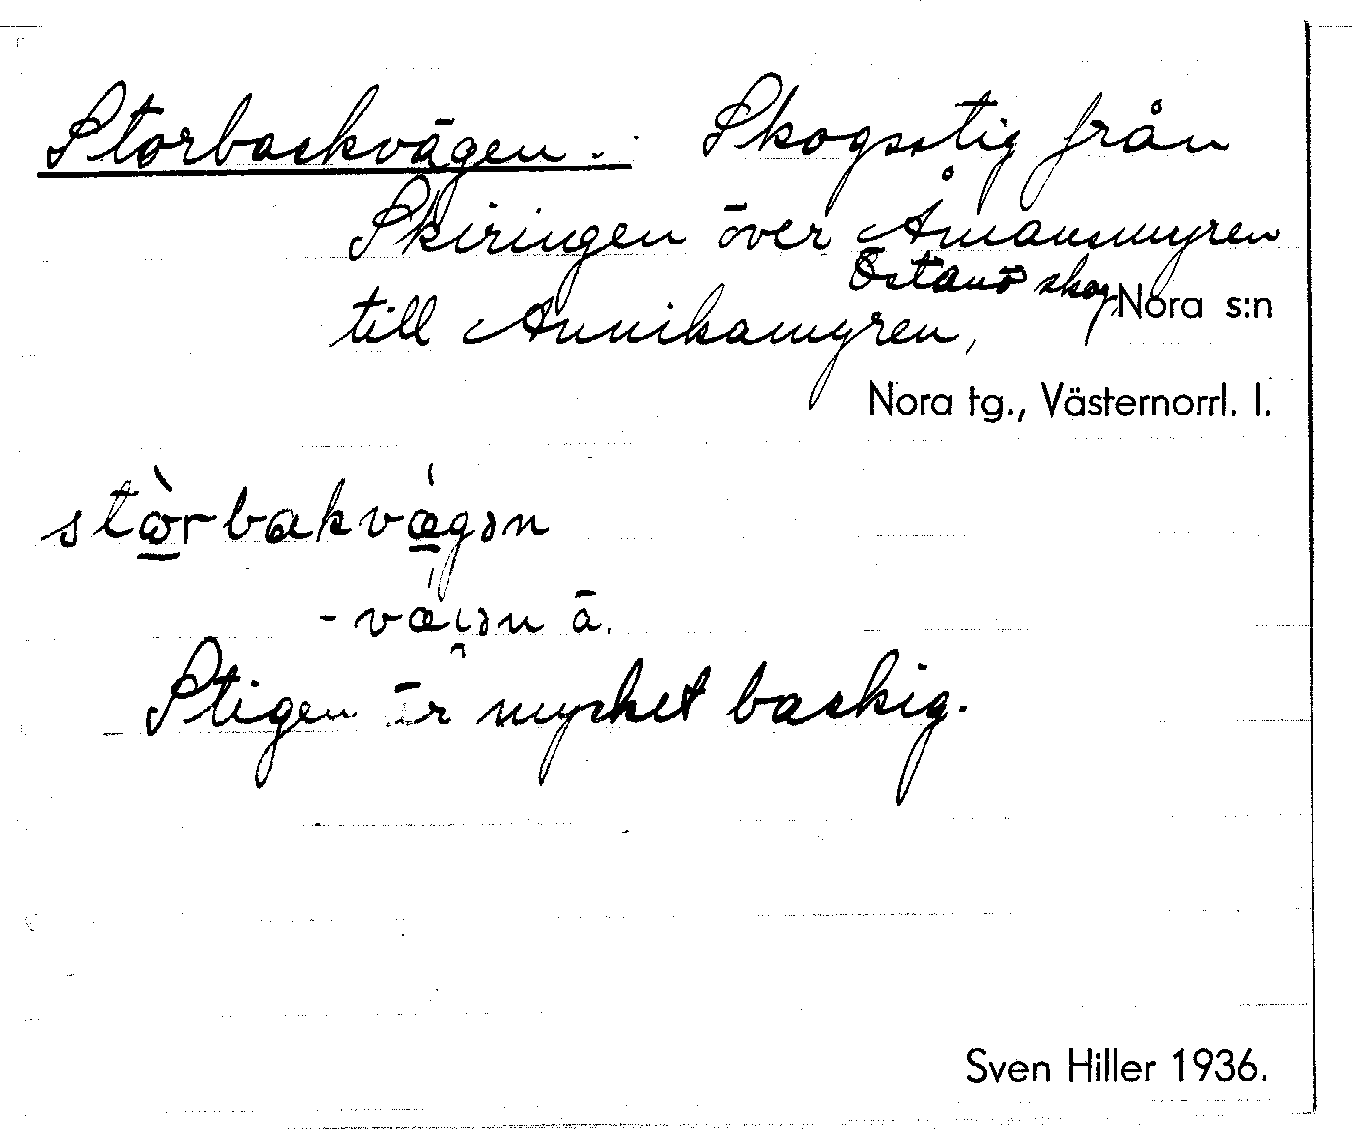 Storbackvägen. Skogsstig från
Skiringen över Åmansmyren
Östanö skog Nora s:n
till Annikamyren,
Nora tg., Västernorrl. l.
stòrbakvǽgən
-væi̯ən ä.
Stigen är mycket backig.
Sven Hiller 1936.